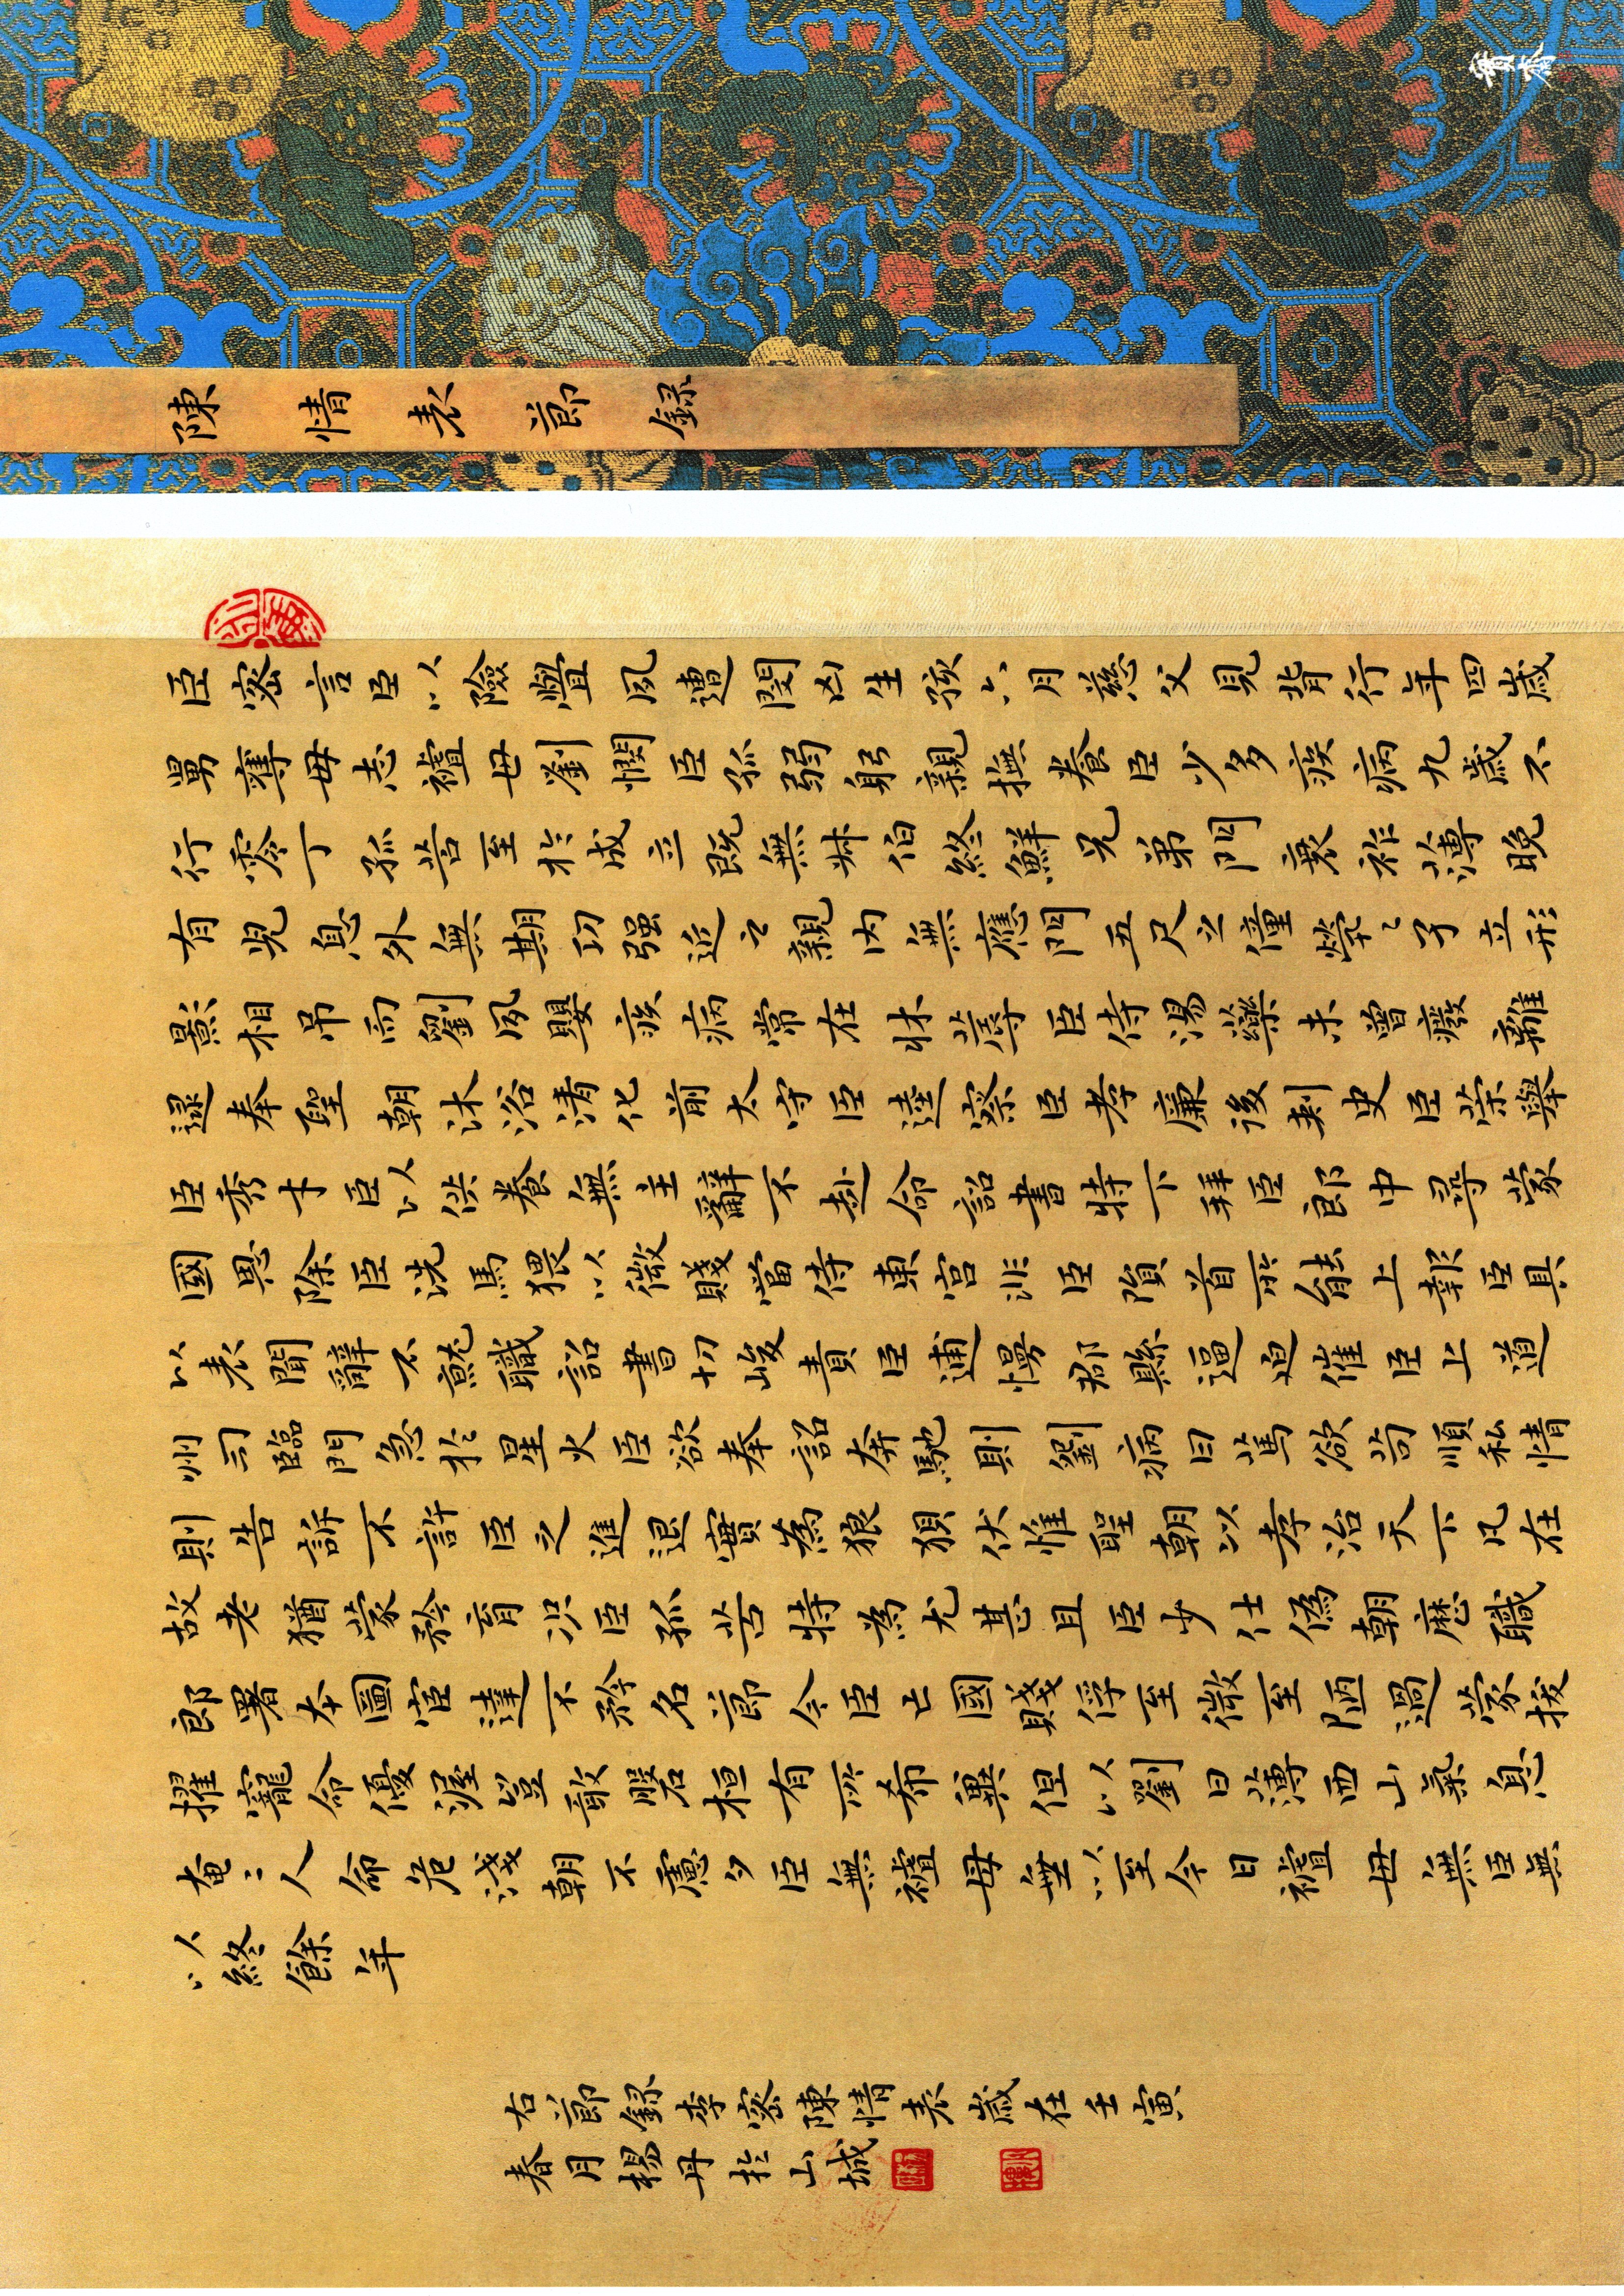 陳情表節録
臣密言臣以險釁夙遭閔凶生孩六月慈父見背行年四歲
舅奪母志祖母劉憫臣孤弱躬親撫養臣少多疾病九歲不
行零丁孤苦至於成立既無叔伯終鮮兄弟門衰祚薄晚
有兒息外無期功强近之親内無應門五尺之僮煢〻孑立形
影相吊而劉夙嬰疾病常在牀蓐臣侍湯藥未曾廢離
逮奉聖朝沐浴清化前太守臣逵察臣孝廉後刺史臣榮舉
臣秀才臣以供養無主辭不赴命詔書特下拜臣郎中尋蒙
國恩除臣洗馬猥以微賤當侍東宮非臣隕首所能上報臣具
以表聞辭不就職詔書切峻責臣逋慢郡縣逼迫催臣上道
州司臨門急於星火臣欲奉詔奔馳則劉病日篤欲苟順私情
則告訴不許臣之進退實為狼狽伏惟聖朝以孝治天下凡在
故老猶蒙矜育況臣孤苦特為尤甚且臣少仕偽朝歷職
郎署本圖宦達不矜名節今臣亡國賤俘至微至陋過蒙拔
擢寵命優渥豈敢盤桓有所希冀但以劉日薄西山氣息
奄〻人命危淺朝不慮夕臣無祖母無以至今日祖母無臣無
以終餘年
右節録李密陳情表歲在壬寅
春月楊丹於山城